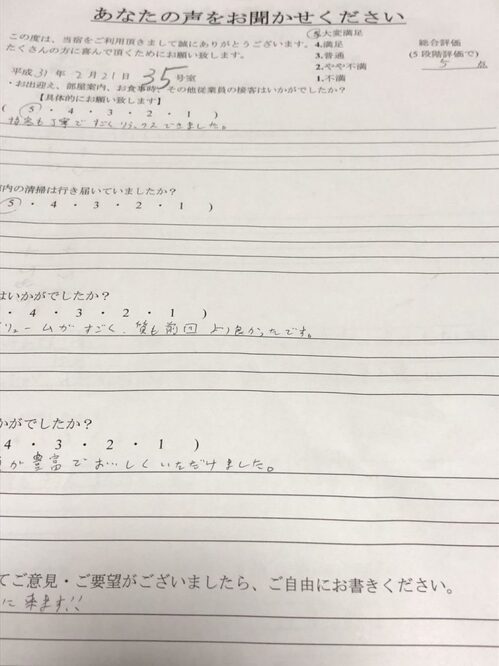 あなたの声をお聞かせください
この度は、当宿をご利用頂きまして誠にありがとうございます。
たくさんの方に喜んで頂くためにお願い致します。
⑤大変満足
4.満足
3.普通
2.やや不満
1.不満
総合評価
(5段階評価で)
5 点
平成31年2月21日 35号室
・お出迎え、部屋案内、お食事時、その他従業員の接客はいかがでしたか？
【具体的にお願い致します】
( ⑤ ・ 4 ・ 3 ・ 2 ・ 1 )
接客も丁寧ですごくリラックスできました。
内の清掃は行き届いていましたか？
⑤ ・ 4 ・ 3 ・ 2 ・ 1 )
はいかがでしたか？
・ 4 ・ 3 ・ 2 ・ 1 )
リュームがすごく、質も前回より良かったです。
かがでしたか？
4 ・ 3 ・ 2 ・ 1 )
が豊富でおいしくいただけました。
てご意見・ご要望がございましたら、ご自由にお書きください。
に来ます!!